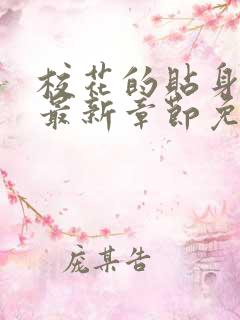 校花的贴身
最新章节免
庞某告